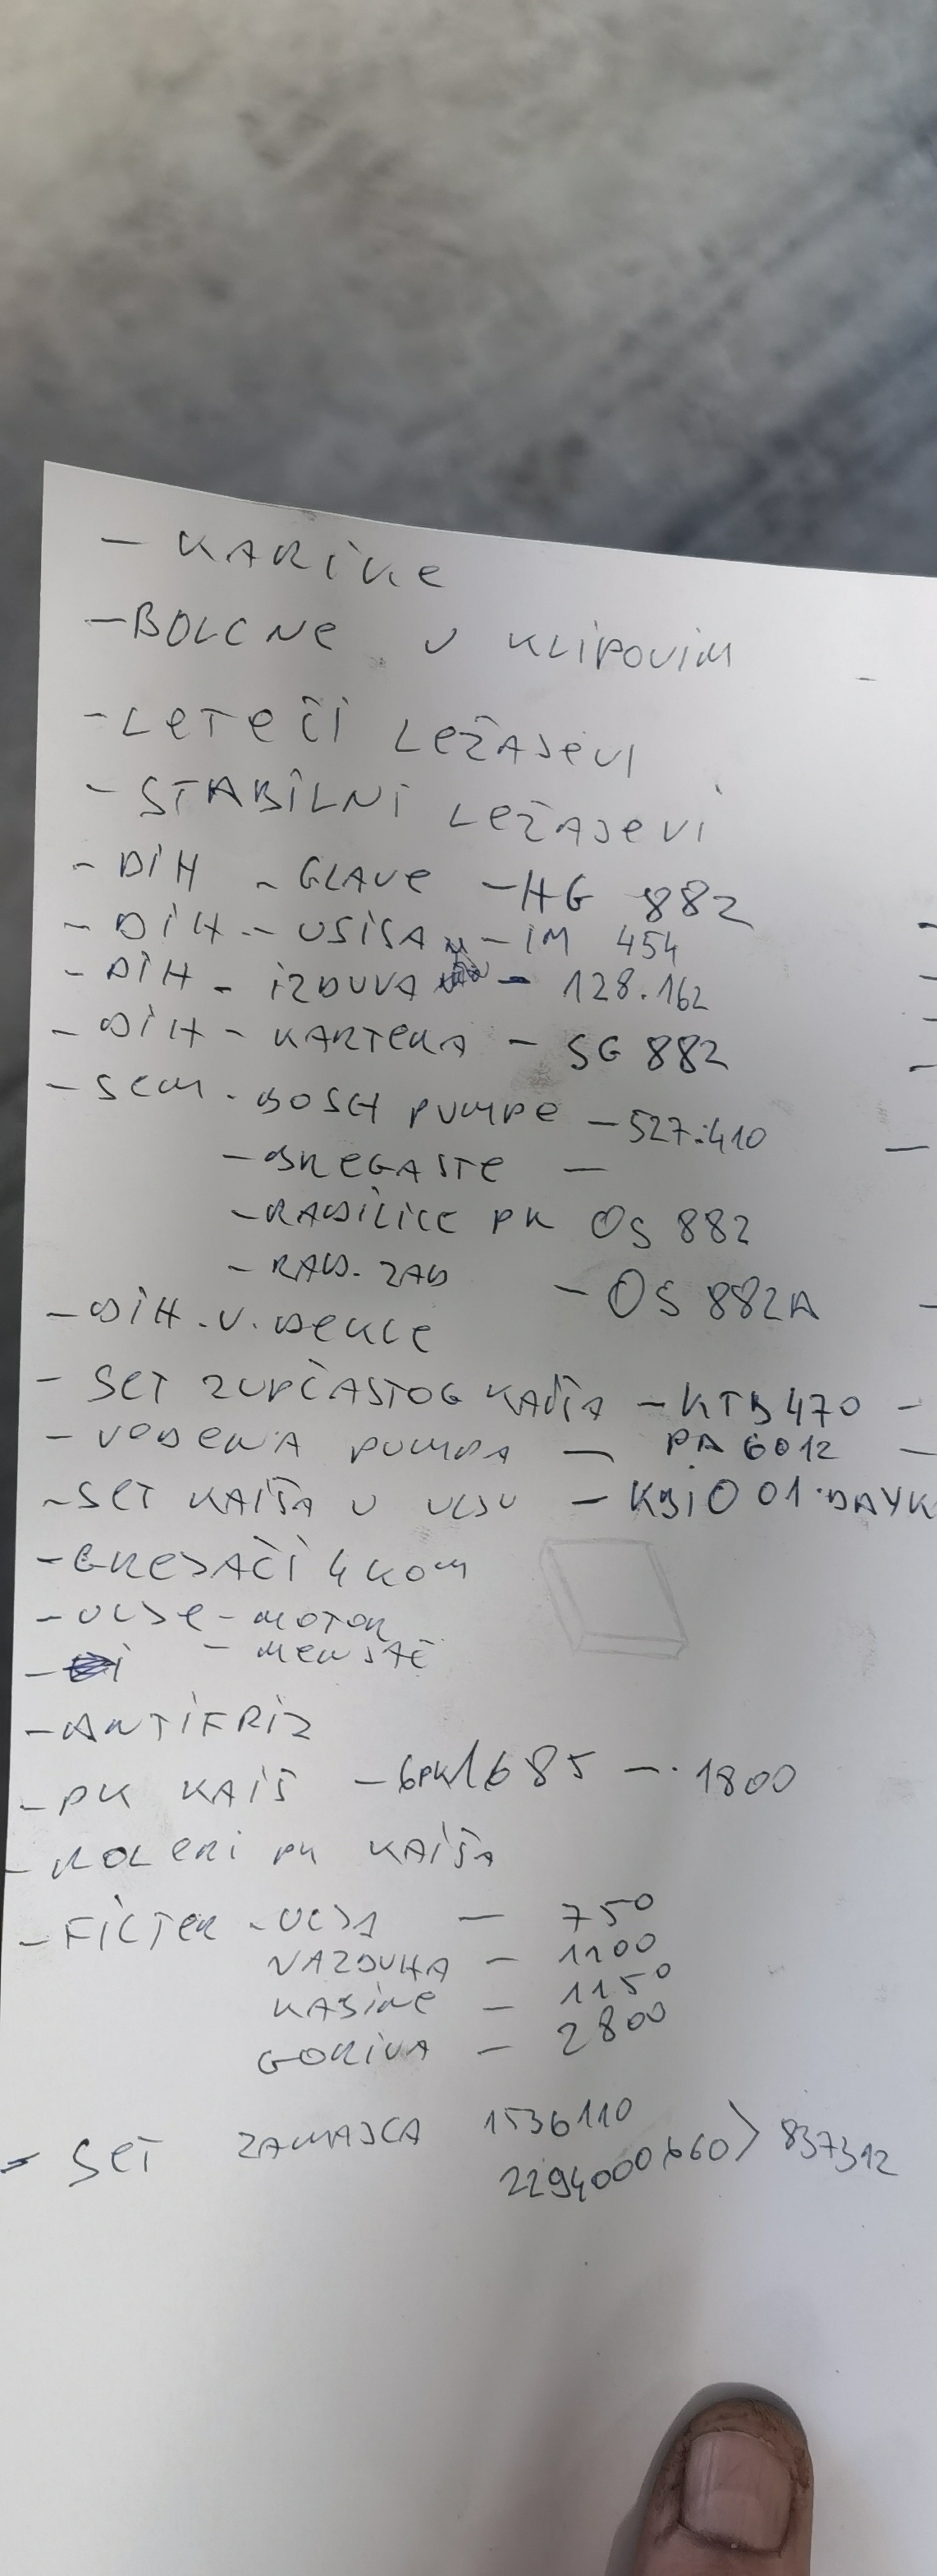 - KARIKE
- BOLCNE U KLIPOVIM
- LETEČI LEŽAJEVI
- STABILNI LEŽAJEVI
- DIH - GLAVE - HG 882
- DIH - USISA - IM 454
- DIH - IZDUVA - 128.162
- DIH - KARTERA - SG 882
- SEM. BOSCH PUMPE - 527.410
- BREGASTE -
- RADILICE PK OS 882
- RAD. ZAD - OS 882A
- DIH. V. DEKLE
- SET ZUPČASTOG KAIŠA - KTB 470 -
- VODENA PUMPA - PA 6012 -
- SET KAIŠA U ULJU - KBIO 01 DAYK
- GREJAČI 4 KOM
- ULJE - MOTOR
- MENJAČ
- ANTIFRIZ
- PK KAIŠ - 6PK1685 - 1800
- ROLERI PK KAIŠA
- FILTER - ULJA - 750
VAZDUHA - 1100
KABINE - 1150
GORIVA - 2800
- SET ZAMAJCA 1536110
2294000660 > 837312